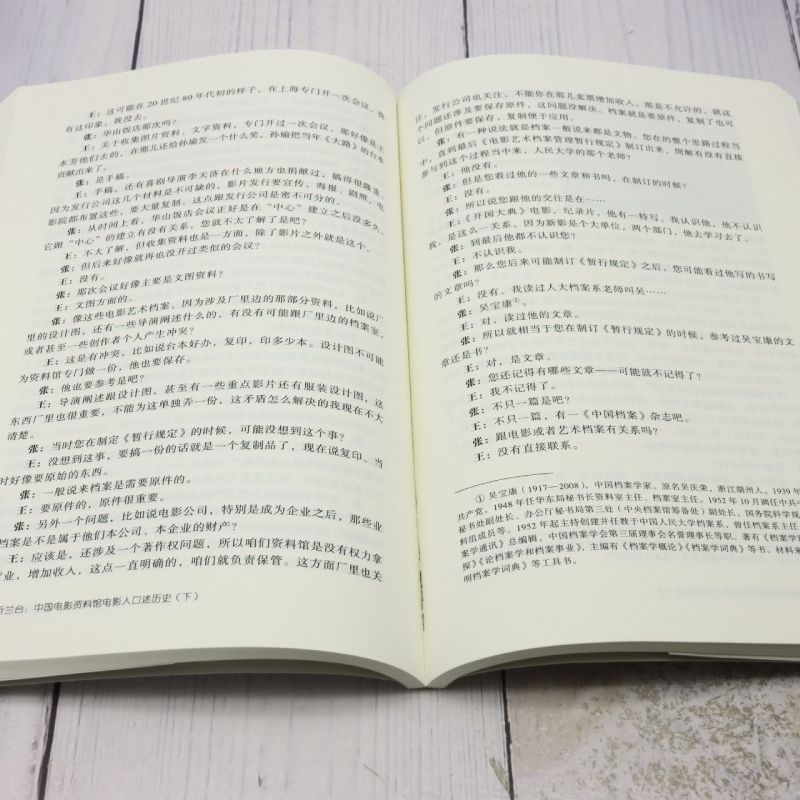 王：这可能在20世纪80年代初的样子，在上海专门开一次会议，我
有这印象，我没去。
张：华山饭店那次吗？
王：关于收集图片资料、文字资料，专门开过一次会议，那好像是王
永芳他们去的，在那儿还给孙瑜发一个什么奖，孙瑜把当年《大路》的台本
贡献出来了。
张：是手稿。
王：手稿，还有喜剧导演李天济在什么地方也捐献过，搞得很隆重。
因为发行公司这几个材料是不可缺的，影片发行要宣传，海报、剧照，电
影院都布置这些，要大量复制。这点跟发行公司是密不可分的。
张：从时间上看，华山饭店会议正好是在“中心”建立之后没多久，
它跟“中心”的建立有没有关系，您就不太了解了是吧？
王：不大了解，但收集资料也是一方面，除了影片之外就是这个。
张：但后来好像就再也没开过类似的会议？
王：没有。
张：那次会议好像主要是文图资料？
王：文图方面的。
张：像这些电影艺术档案，因为涉及厂里边的那部分资料，比如说厂
里的设计图，还有一些导演阐述什么的，有没有可能跟厂里边的档案室，
或者甚至一些创作者个人产生冲突？
王：这是有冲突，比如说台本好办，复印，印多少本。设计图不可能
为资料馆专门做一份，他也要保存。
张：他也要参考是吧？
王：导演阐述跟设计图，甚至有一些重点影片还有服装设计图，这
东西厂里也很重要，不能为这单独弄一份，这矛盾怎么解决的我现在不大
清楚。
张：当时您在制定《暂行规定》的时候，可能没想到这个事？
王：没想到这事，要搞一份的话就是一个复制品了，现在说复印。当
时好像要原始的东西。
张：一般说来档案是需要原件的。
王：要原件的，原件很重要。
张：另外一个问题，比如说电影公司，特别是成为企业之后，那些业
档案是不是属于他们本公司、本企业的财产？
王：应该是，还涉及一个著作权问题，所以咱们资料馆是没有权力拿
营业，增加收入，这点一直明确的，咱们就负责保管。这方面厂里也关
兰台：中国电影资料馆电影人口述历史（下）
注，发行公司也关注，不能你在那儿卖票增加收入，那是不允许的。就这
个问题还涉及要保存原件，这问题没解决。档案就是要原件，复制了也可
以，但原件要保存，复制便于应用。
张：有一种说法就是档案一般说来都是文物。您在的整个思路过程当
中，直到最后《电影艺术档案管理暂行规定》制订出来，周解有没有直接
参与到这个过程当中来，人民大学的那个老师？
王：他没有。
张：但是您看过他的一些文章和书吗，在制订的时候？
王：没有。
张：所以说您跟他的交往是在……
王：《开国大典》电影，纪录片，他有一特写。我认识他，他不认识
我，是这么一关系。因为新影是个大单位，两个部门，他去学习去了。
张：到最后他都不认识您？
王：不认识我。
张：那么您后来可能制订《暂行规定》之后，您可能看过他写的书写
的文章吗？
王：没有。我读过人大档案系老师叫吴……
张：吴宝康①。
王：对，读过他的文章。
张：所以就相当于您在制订《暂行规定》的时候，参考过吴宝康的文
章还是书？
王：对，是文章。
张：您还记得有哪些文章——可能就不记得了？
王：我不记得了。
张：不只一篇是吧？
王：不只一篇，有一《中国档案》杂志吧。
张：跟电影或者艺术档案有关系吗？
王：没有直接联系。
① 吴宝康（1917—2008），中国档案学家。原名吴庆荣，浙江湖州人。1939年
共产党，1948年任华东局秘书长资料室主任、档案室主任。1952年10月调任中共中
秘书处副处长、办公厅秘书局第三处（中央档案馆筹备处）副处长，国务院科学规
料组成员等。1952年起主持创建并任教于中国人民大学档案系，曾任档案系主任
案学通讯》总编辑，中国档案学会第三届理事会名誉理事长等职。著有《档案学理
探》《论档案学和档案事业》、主编有《档案学概论》《档案学词典》等书。材料来
明档案学词典》等工具书。